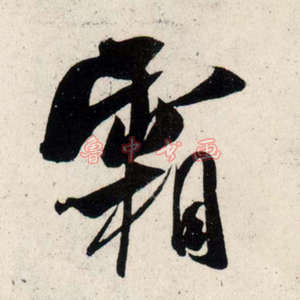 霜
鲁中书画